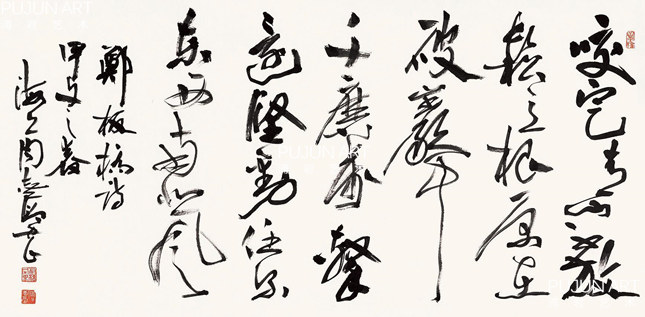 咬定青山不放
鬆立根原在
破巖中
千磨萬擊
還堅勁任爾
東西南北風
鄭板橋詩
甲午之春
海上周志高
PUJUN ART
PUJUN ART
PUJUN ART